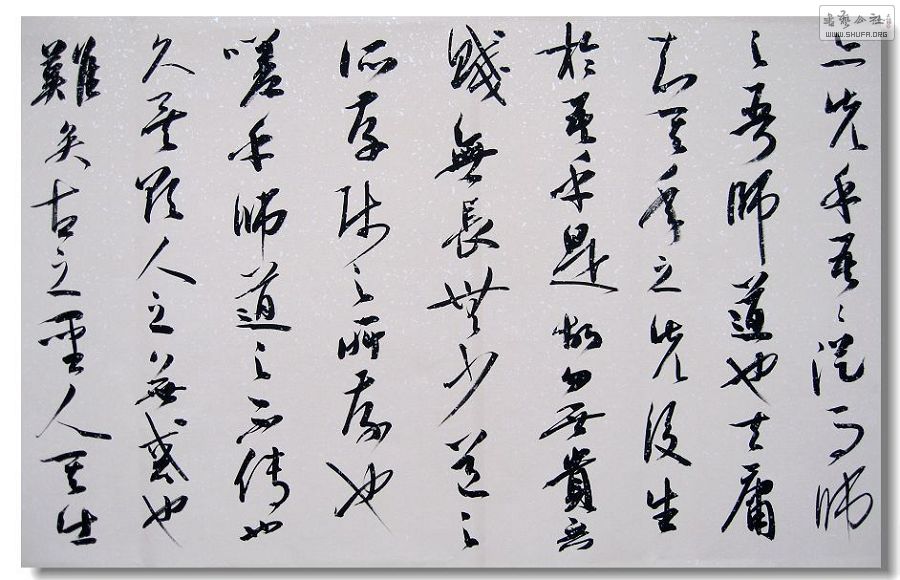 亦先乎吾吾從而師
之吾師道也夫庸
知其年之先後生
於吾乎是故勿無貴無
賤無長無少道之
所存師之所存也
嗟乎師道之不傳也
久矣欲人之無惑也
難矣古之聖人其出
書藝公社
WWW.SHUFA.ORG